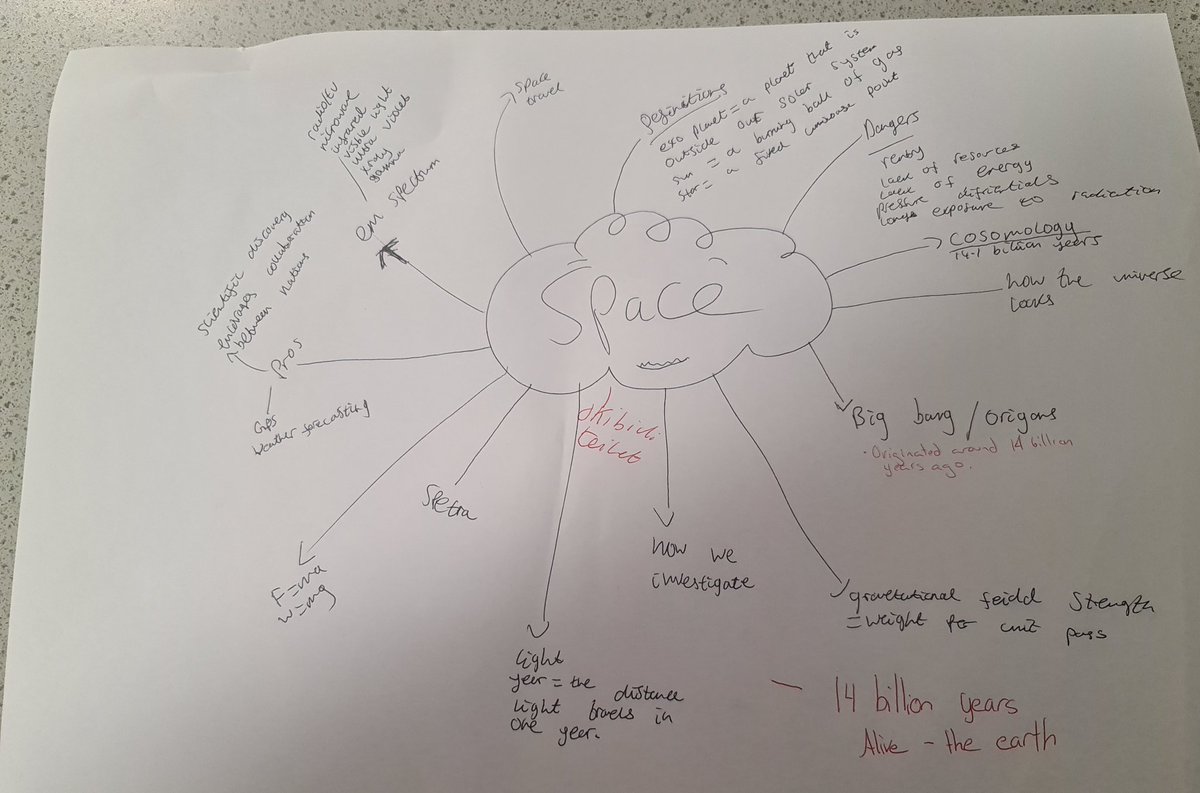 Space
Space
travel
Definitions
exo planet = a planet that is
outside our solar system
sun = a burning ball of gas
star = a fixed luminous point
Dangers
rentry
Lack of resorces
Lack of energy
pressure difrientials
long exposure to radiation
COSOMOLOGY
14.1 billion years
how the universe
looks
Big bang / origans
· Originated around 14 billion
years ago.
gravetutional feidd Strength
= weight per unit pass
14 billion years
Alive - the earth
how we
investigate
skibidi
toilet
light
year = the distance
light travels in
one year.
Spetra
F=ma
w=mg
Pros
Scientific discovery
encourages collaboration
between nations
Gps
Weather forecasting
em spectrum
radio/tv
microwave
infrared
visible light
ultra violet
xray
gamma